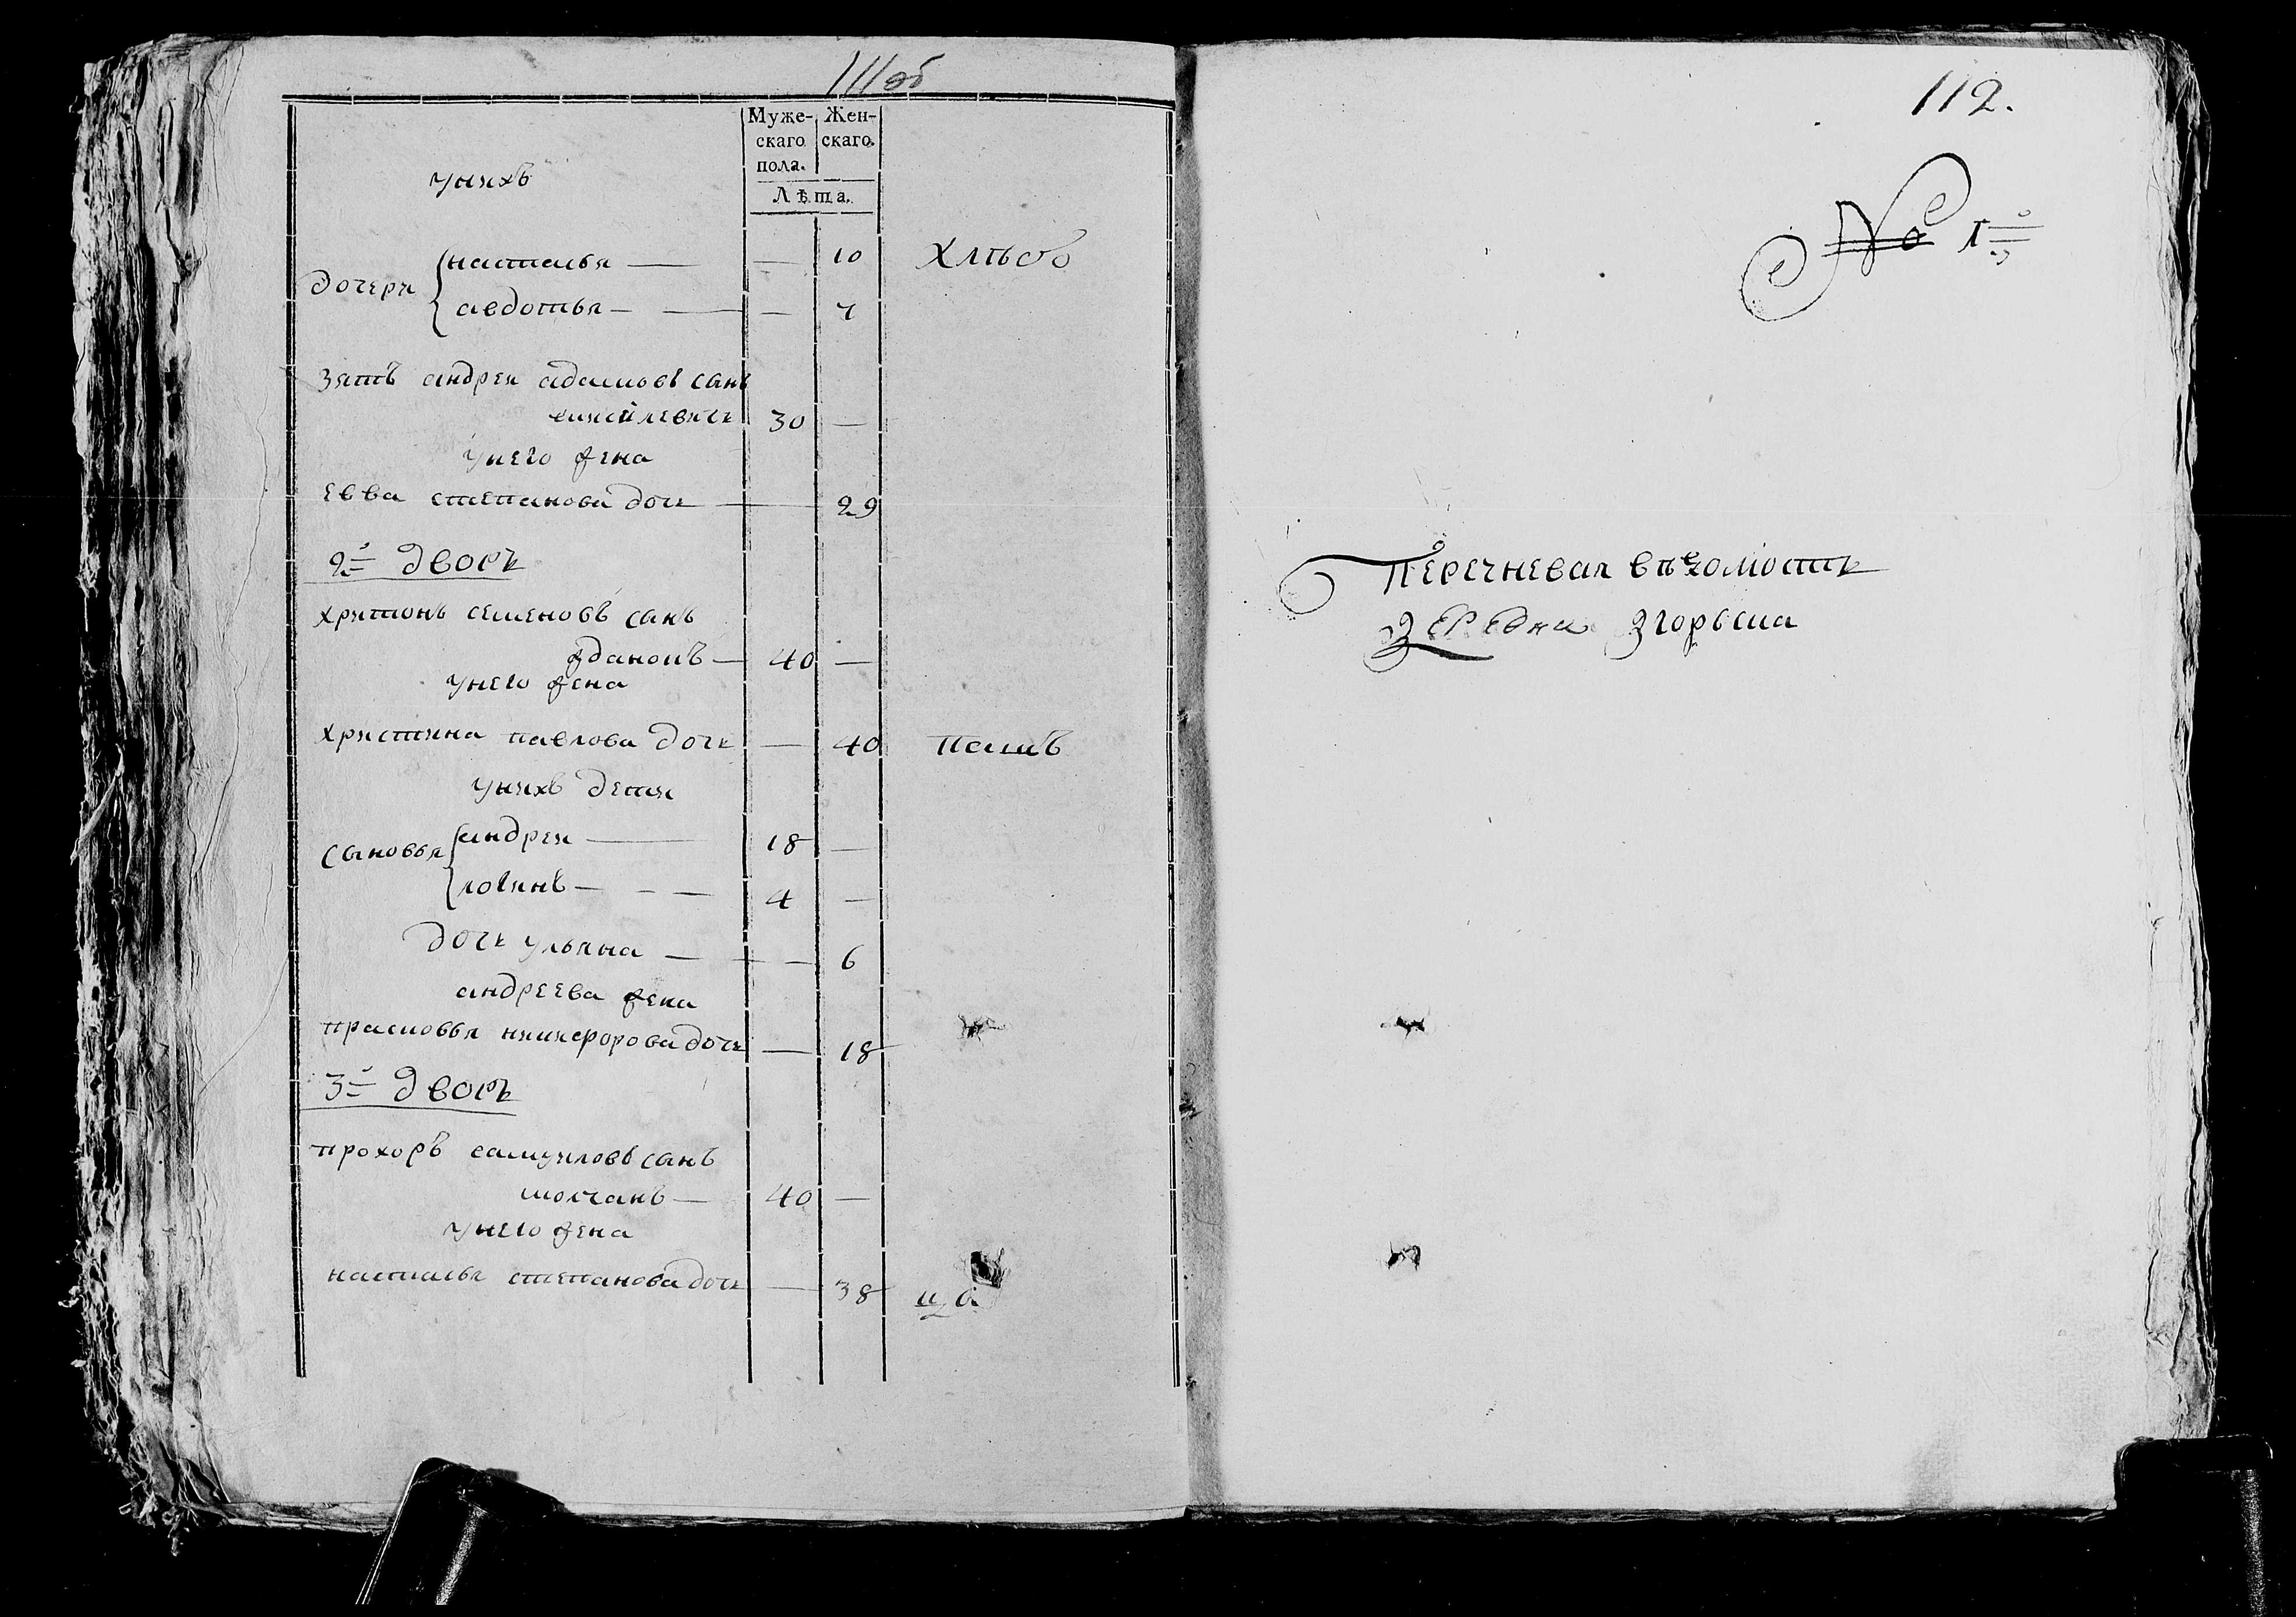 111об
Муже-
скаго
пола.
Жен-
скаго.
Лѣта.
унихъ
дочери
наталья — — 10 хлѣбо
авдотья — — 7
зять андреи адамовъ санъ
30 —
унего жена
евва степанова дочь — 29
2й дворъ
харитонъ семеновъ санъ
ждановъ — 40 —
унего жена
христина павлова дочь — 40 пашъ
унихъ дети
сановья
андреи — 18 —
логинъ — 4 —
дочь ульяна — — 6
андреева жена
прасковья никифорова дочь — 18
3й дворъ
прохоръ самуиловъ санъ
молчанъ — 40 —
унего жена
наталья степанова дочь — 38 ца
112.
No 1й
Перечневая вѣдомость